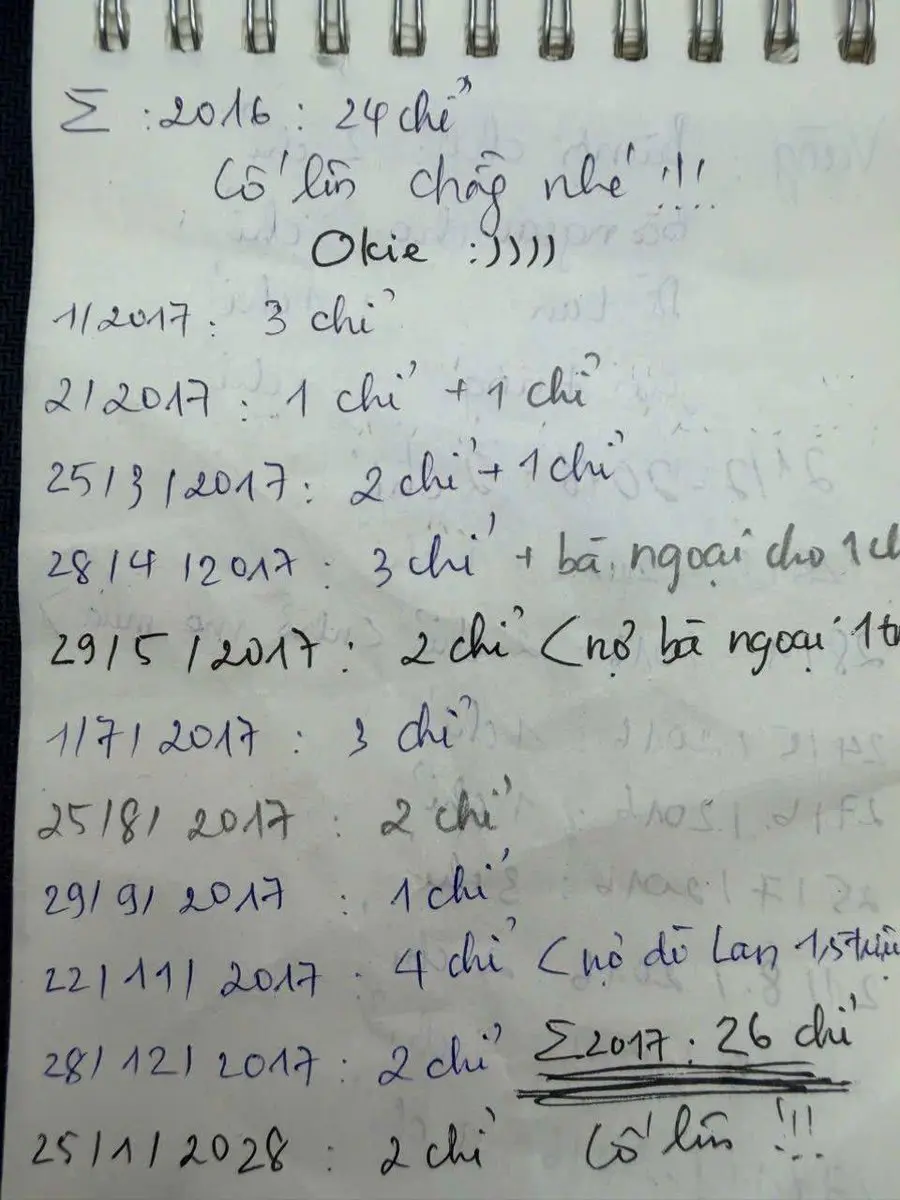 Σ : 2016 : 24 chỉ
Cố lên chồng nhé !!!
Okie :))))
1/2017 : 3 chỉ
2/2017 : 1 chỉ + 1 chỉ
25/3/2017 : 2 chỉ + 1 chỉ
28/4/2017 : 3 chỉ + bà ngoại cho 1 ch
29/5/2017 : 2 chỉ (nợ bà ngoại 1 tr
1/7/2017 : 3 chỉ
25/8/2017 : 2 chỉ
29/9/2017 : 1 chỉ
22/11/2017 : 4 chỉ (nợ dì Lan 1,5 triệu
28/12/2017 : 2 chỉ Σ 2017 : 26 chỉ
25/1/2028 : 2 chỉ Cố lên !!!